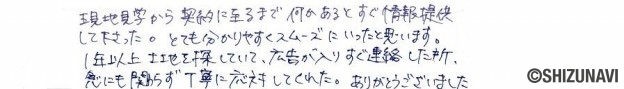 現地見学から契約に至るまで何かあるとすぐ情報提供
して下さった。とても分かりやすくスムーズにいったと思います。
1年以上土地を探していて、広告が入りすぐ連絡した所、
急にも関わらず丁寧に応対してくれた。ありがとうございました
©SHIZUNAVI